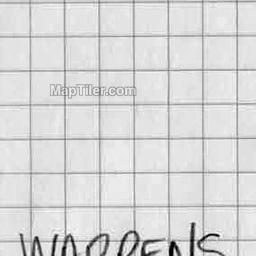 MapTiler.com
WARRENS